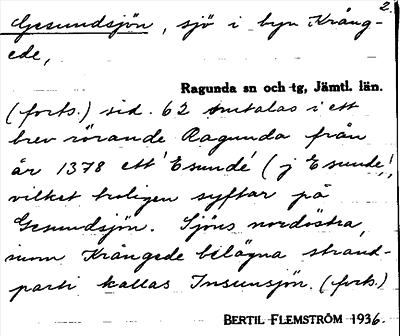 2.
Gesundsjön, sjö i byn Krång-
ede,
Ragunda sn och tg, Jämtl. län.
(forts.) sid. 62 omtalas i ett
brev rörande Ragunda från
år 1378 ett 'Esundé' (j Esunde),
vilket troligen syftar på
Gesundsjön. Sjöns nordöstra,
inom Krångede belägna strand-
parti kallas Insunsjön. (forts.)
BERTIL FLEMSTRÖM 1936.